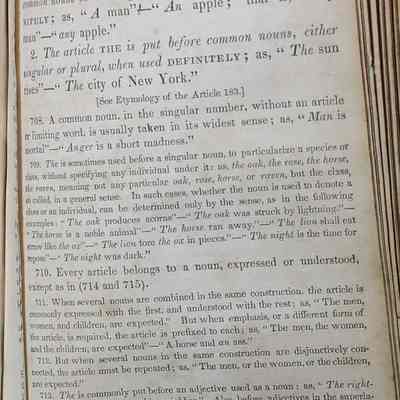 common nouns
NITELY; as, "A man"—"An apple;"
man"—"any apple."
2. The article THE is put before common nouns, either
singular or plural, when used DEFINITELY; as, "The sun
rises"—"The city of New York."
[See Etymology of the Article 183.]
708. A common noun, in the singular number, without an article
or limiting word, is usually taken in its widest sense; as, "Man is
mortal"—"Anger is a short madness."
709. The is sometimes used before a singular noun, to particularize a species or
class, without specifying any individual under it: as, the oak, the rose, the horse,
the raven, meaning not any particular oak, rose, horse, or raven, but the class,
so called, in a general sense. In such cases, whether the noun is used to denote a
class or an individual, can be determined only by the sense, as in the following
examples: "The oak produces acorns"—"The oak was struck by lightning."—
"The horse is a noble animal"—"The horse ran away."—"The lion shall eat
straw like the ox"—"The lion tore the ox in pieces."—"The night is the time for
repose"—"The night was dark."
710. Every article belongs to a noun, expressed or understood,
except as in (714 and 715).
711. When several nouns are combined in the same construction, the article is
commonly expressed with the first, and understood with the rest; as, "The men,
women, and children, are expected." But when emphasis, or a different form of
the article, is required, the article is prefixed to each; as, "The men, the women,
and the children, are expected"—"A horse and an ass."
712. But when several nouns in the same construction are disjunctively con-
nected, the article must be repeated; as, "The men, or the women, or the children,
are expected."
713. The is commonly put before an adjective used as a noun; as, "The right-
Also before adjectives in the superla-